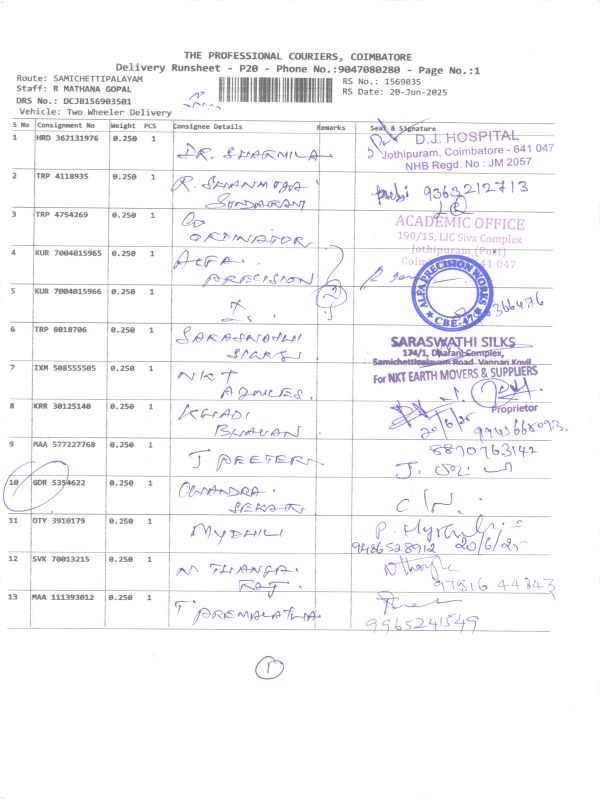 THE PROFESSIONAL COURIERS, COIMBATORE
Delivery Runsheet - P20 - Phone No.:9047080280 - Page No.:1
Route: SAMICHETTIPALAYAM
Staff: R MATHANA GOPAL
DRS No.: DCJB156903501
Vehicle: Two Wheeler Delivery
RS No.: 1569035
RS Date: 20-Jun-2025
S No Consignment No Weight PCS Consignee Details Remarks Seal & Signature
1 HRD 362131976 0.250 1 DR. SHARMILA
D.J. HOSPITAL
Jothipuram, Coimbatore - 641 047
NHB Regd. No : JM 2057
2 TRP 4118935 0.250 1 R. SHANMUGA
SUNDARAM
9363212713
3 TRP 4754269 0.250 1 CO
ORDINATOR
ACADEMIC OFFICE
190/15, LIC Siva Complex
Jothipuram (Post)
641 047
4 KUR 7004015965 0.250 1 ALFA
PRECISION
ALFA PRECISION WORKS
CBE-47
5 KUR 7004015966 0.250 1
2
6 TRP 8018706 0.250 1 SARASWATHI
SILKS
SARASWATHI SILKS
174/1, Dharani Complex,
Samichettipalayam Road, Vannan Kovil
7 IXM 508555505 0.250 1 NKT
AGENCIES.
For NKT EARTH MOVERS & SUPPLIERS
Proprietor
8 KRR 30125140 0.250 1 KHADI
BHAVAN
20/6/25
9 MAA 577227768 0.250 1 J PEETER
8870763142
10 GDR 5354622 0.250 1 CHANDRA
SEKAR
11 OTY 3910179 0.250 1 MYDHILI
9486528912 20/6/25
12 SVK 70013215 0.250 1 N THANGA
RAJ.
97516 44343
13 MAA 111393012 0.250 1 T PREMALATHA
9965241549
1